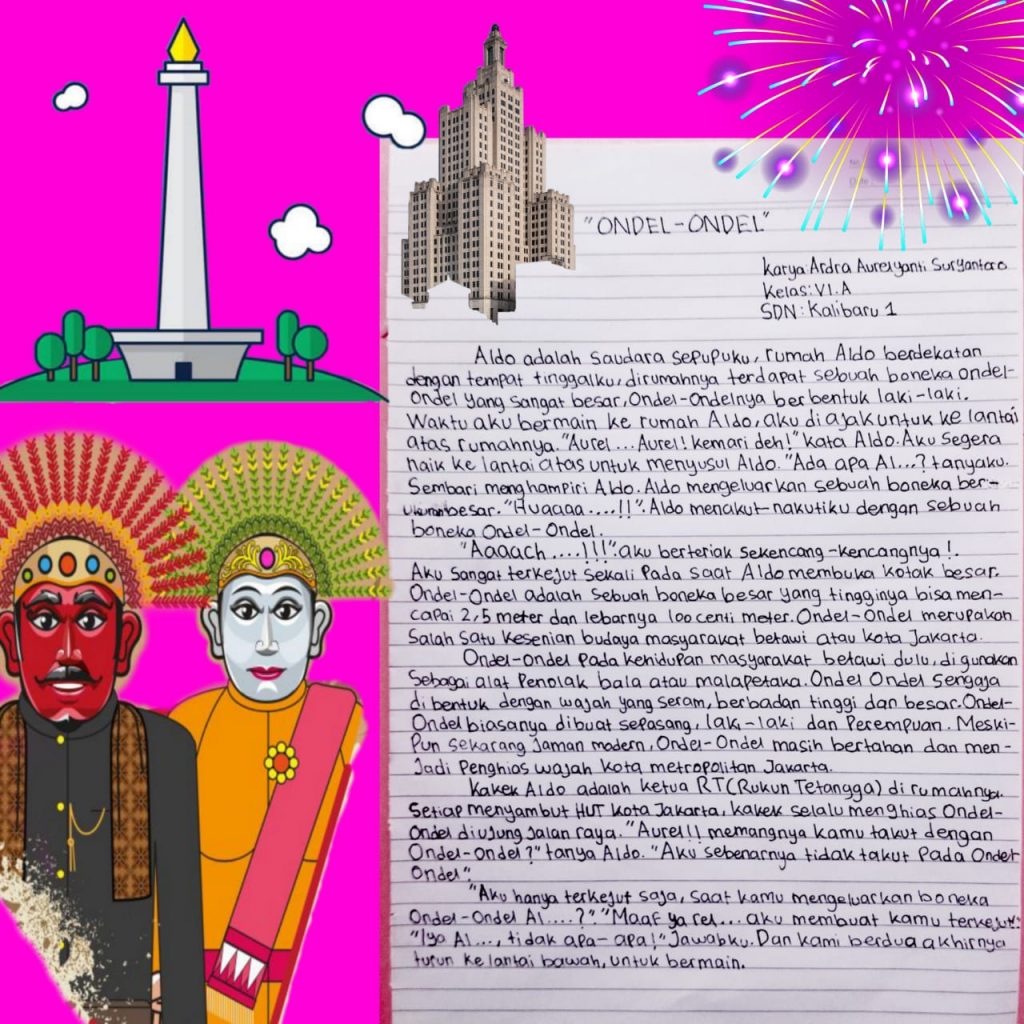 "ONDEL-ONDEL"
Karya: Ardra Aurelyanti Suryantoro
Kelas: VI.A
SDN: Kalibaru 1
Aldo adalah saudara sepupuku, rumah Aldo berdekatan
dengan tempat tinggalku, dirumahnya terdapat sebuah boneka ondel-
ondel yang sangat besar, Ondel-Ondelnya berbentuk laki-laki.
Waktu aku bermain ke rumah Aldo, aku di ajak untuk ke lantai
atas rumahnya. "Aurel...Aurel! kemari deh!" kata Aldo. Aku segera
naik ke lantai atas untuk menyusul Aldo. "Ada apa Al...? tanyaku.
Sembari menghampiri Aldo. Aldo mengeluarkan sebuah boneka ber-
ukuran besar. "Huaaaa....!!". Aldo menakut-nakutiku dengan sebuah
boneka Ondel-Ondel.
"Aaaach ....!!!" aku berteriak sekencang-kencangnya!.
Aku sangat terkejut sekali pada saat Aldo membuka kotak besar.
Ondel-Ondel adalah sebuah boneka besar yang tingginya bisa men-
capai 2,5 meter dan lebarnya 100 centi meter. Ondel-Ondel merupakan
salah satu kesenian budaya masyarakat betawi atau kota Jakarta.
Ondel-ondel pada kehidupan masyarakat betawi dulu, di gunakan
sebagai alat penolak bala atau malapetaka. Ondel Ondel sengaja
di bentuk dengan wajah yang seram, berbadan tinggi dan besar. Ondel-
Ondel biasanya dibuat sepasang, laki-laki dan Perempuan. Meski-
pun sekarang jaman modern, Ondel-Ondel masih bertahan dan men-
jadi penghias wajah kota metropolitan Jakarta.
Kakek Aldo adalah ketua RT(Rukun Tetangga) di rumahnya.
Setiap menyambut HUT kota Jakarta, kakek selalu menghias Ondel-
Ondel diujung jalan raya. "Aurel!! memangnya kamu takut dengan
Ondel-Ondel?" tanya Aldo. "Aku sebenarnya tidak takut pada Ondel
Ondel".
"Aku hanya terkejut saja, saat kamu mengeluarkan boneka
Ondel-Ondel Al....?" "Maaf ya rel... aku membuat kamu terkejut."
"Iya Al..., tidak apa-apa!" Jawabku. Dan kami berdua akhirnya
turun ke lantai bawah, untuk bermain.